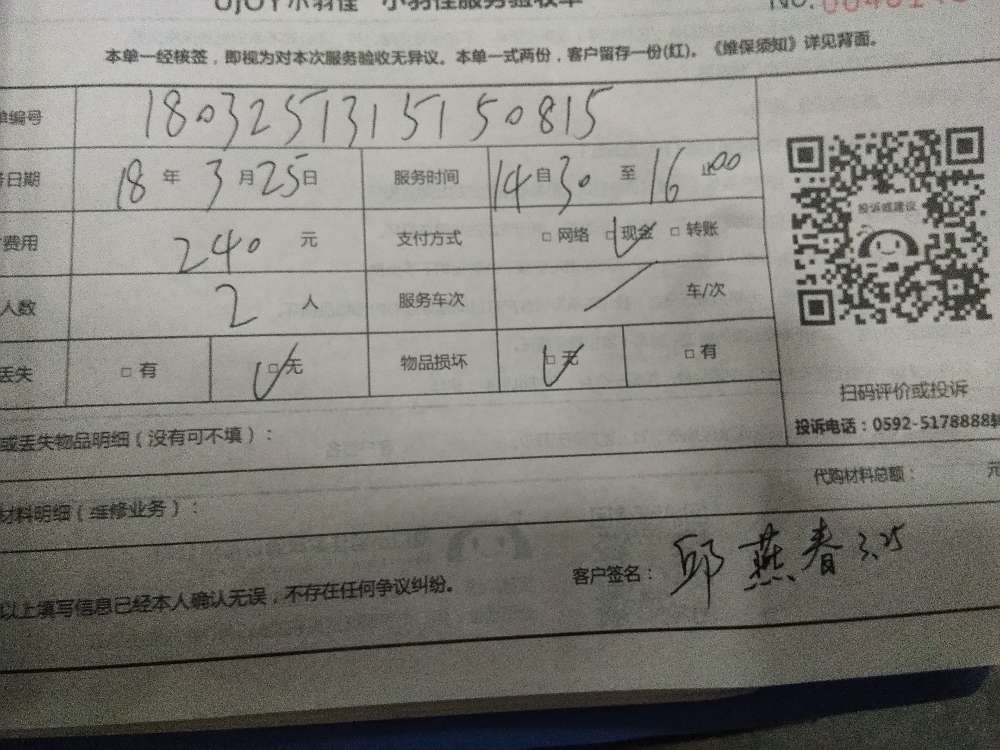 UjOY小羽佳 小羽佳服务验收单
NO.
本单一经核签，即视为对本次服务验收无异议。本单一式两份，客户留存一份(红)。《维保须知》详见背面。
编号 180325131515081 5
日期 18 年 3 月 25 日 服务时间 14 自 30 至 16 止 00
费用 240 元 支付方式 □ 网络 □ 现金 □ 转账
投诉或建议
人数 2 人 服务车次 / 车/次
丢失 □ 有 □ 无 物品损坏 □ 无 □ 有
扫码评价或投诉
投诉电话：0592-5178888转
或丢失物品明细（没有可不填）：
代购材料总额： 元
材料明细（维修业务）：
客户签名： 邱燕春 3.25
以上填写信息已经本人确认无误，不存在任何争议纠纷。